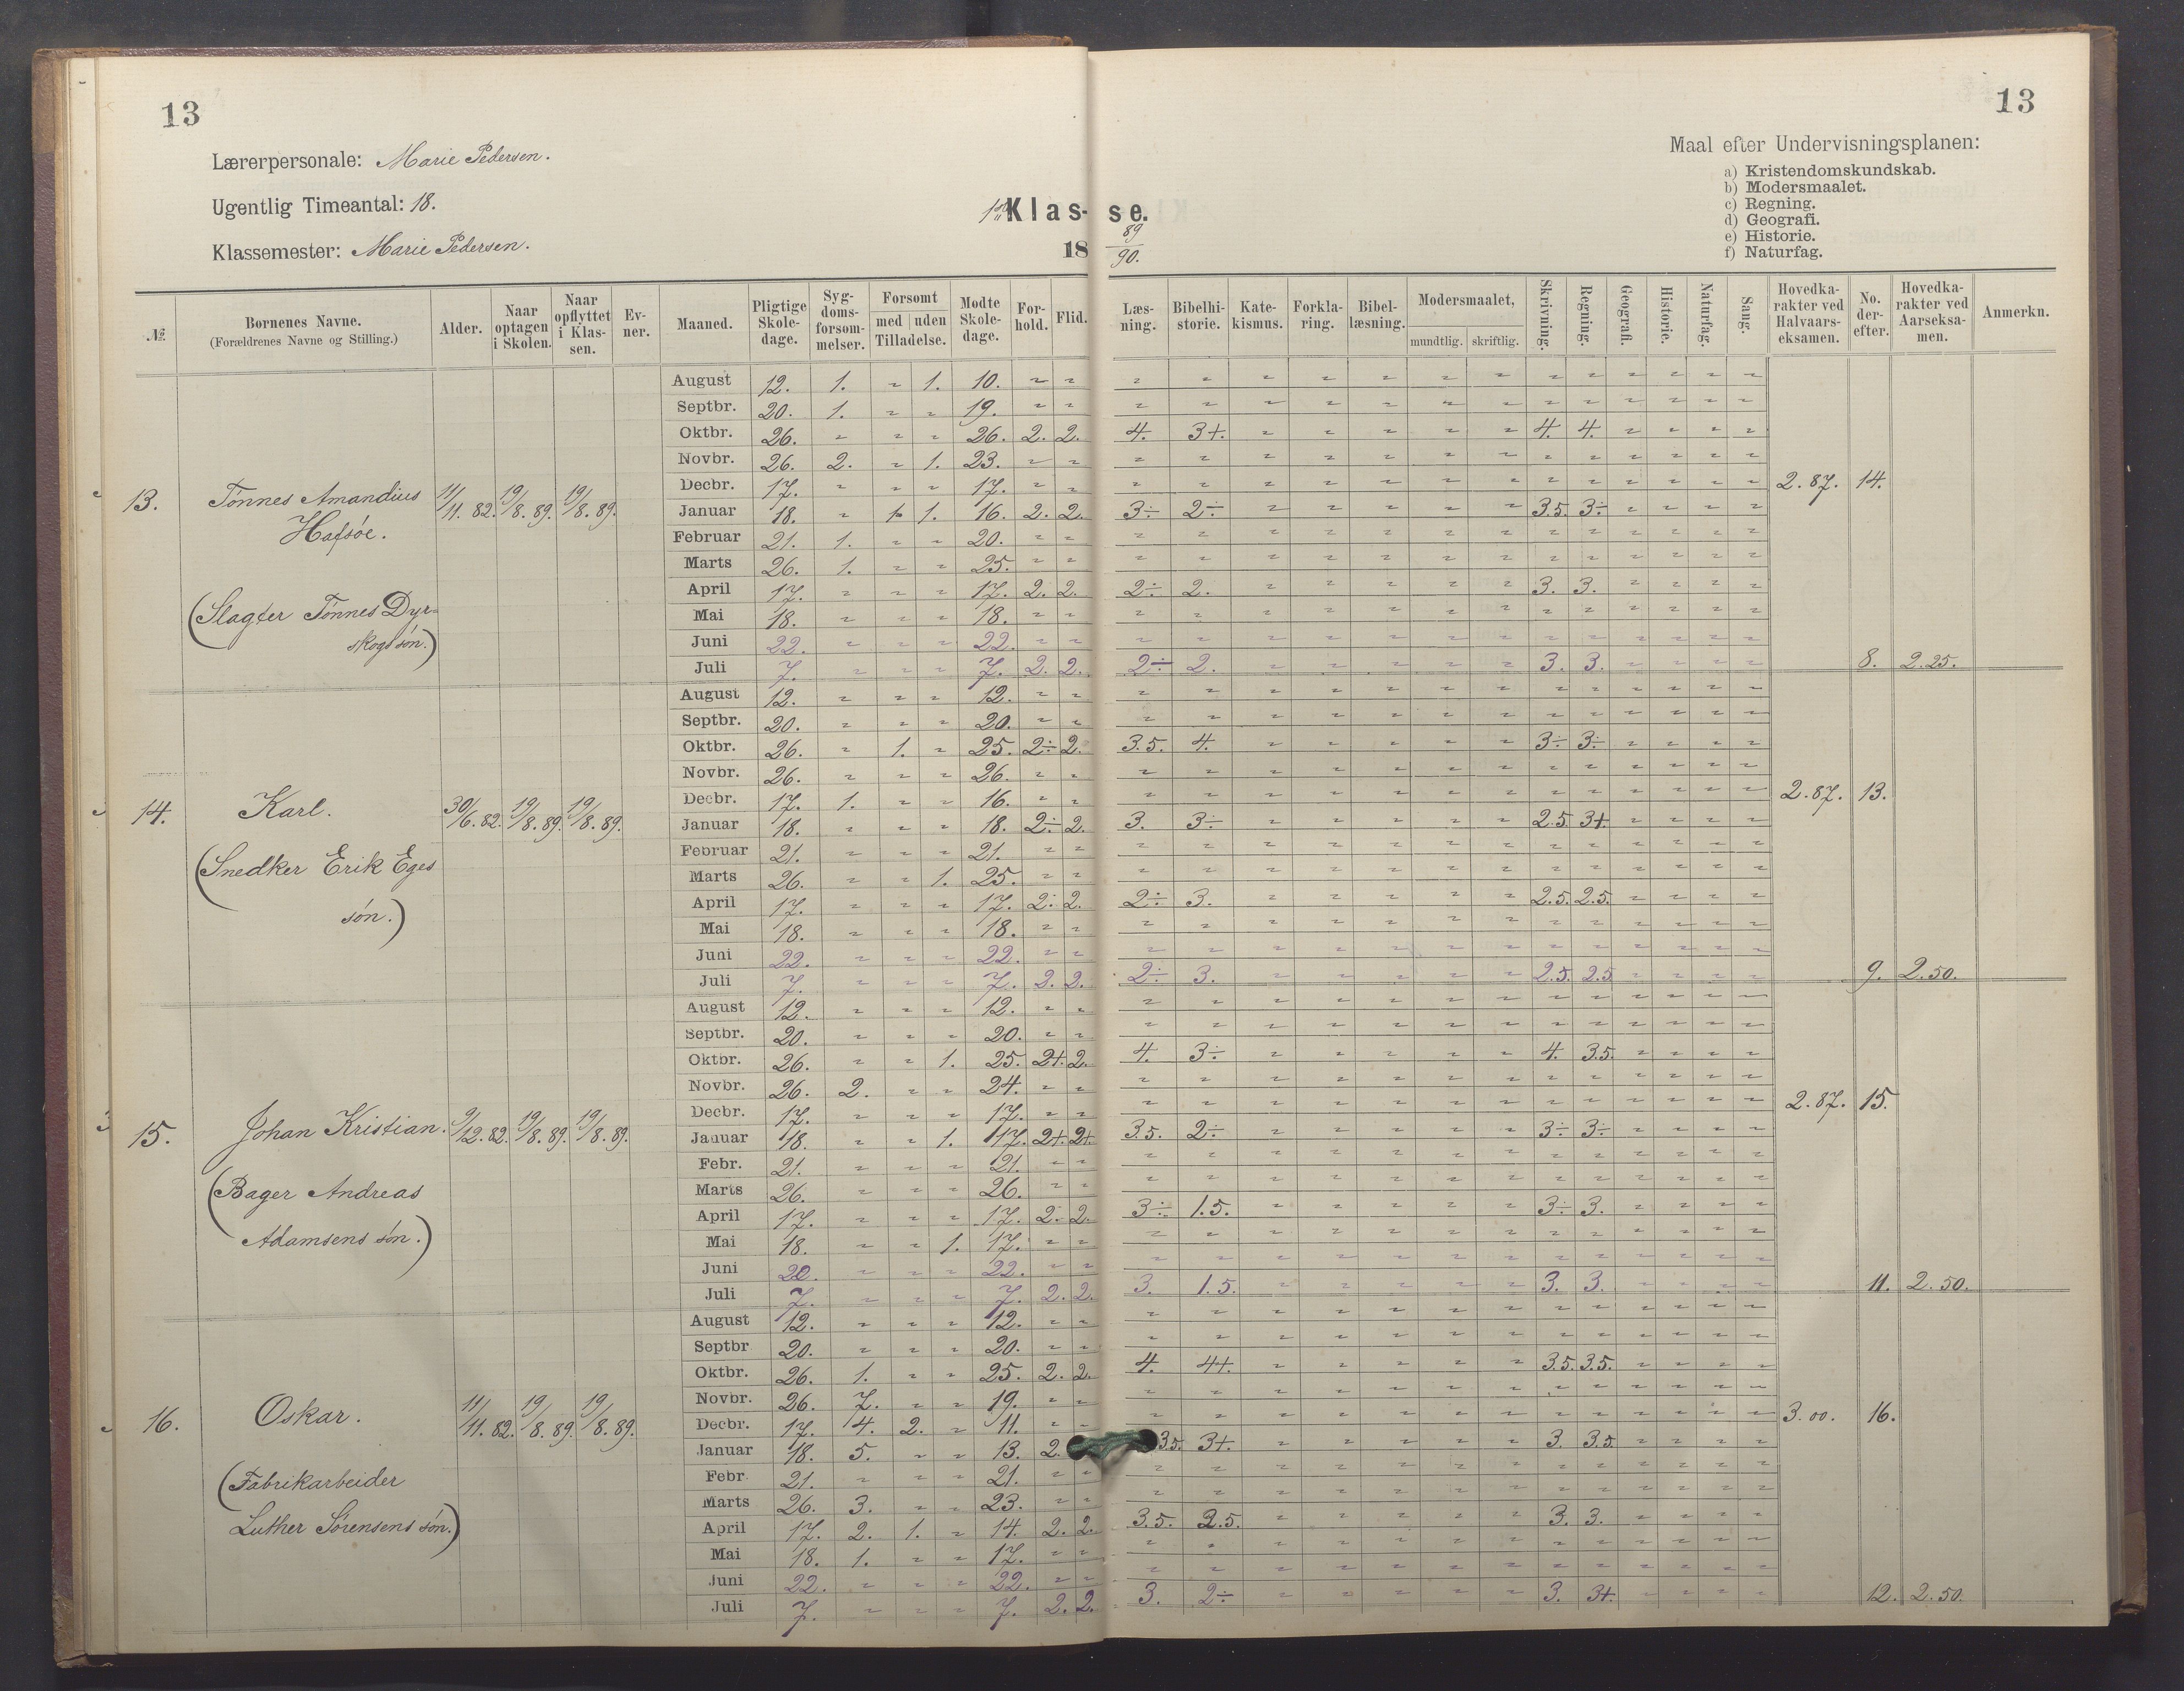 13
13
Lærerpersonale: Marie Pedersen.
Ugentlig Timeantal: 18.
Klassemester: Marie Pedersen.
1ste Klas-se.
18 89/90.
Maal efter Undervisningsplanen:
a) Kristendomskundskab.
b) Modersmaalet.
c) Regning.
d) Geografi.
e) Historie.
f) Naturfag.
№ Børnenes Navne. (Forældrenes Navne og Stilling.) Alder. Naar optagen i Skolen. Naar opflyttet i Klassen. Ev-ner. Maaned. Pligtige Skole-dage. Syg-doms-forsøm-melser. Forsømt med uden Tilladelse. Mødte Skole-dage. For-hold. Flid. Læs-ning. Bibelhi-storie. Kate-kismus. Forkla-ring. Bibel-læsning. Modersmaalet, mundtlig. skriftlig. Skrivning. Regning. Geografi. Historie. Naturfag. Sang. Hovedka-rakter ved Halvaars-eksamen. No. der-efter. Hovedka-rakter ved Aarseksa-men. Anmerkn.
13. Tönnes Amandius Hafsöe. 11/11. 82. 19/8. 89. 19/8. 89.
(Slagter Tönnes Dyr-
skogs sön.)
August 12. 1. " 1. 10. " " " " " " " " " " " " " " "
Septbr. 20. 1. " " 19. " " " " " " " " " " " " " " "
Oktbr. 26. " " " 26. 2. 2. 4. 3+. " " " " " 4. 4. " " " "
Novbr. 26. 2. " 1. 23. " " " " " " " " " " " " " " "
Decbr. 17. " " " 17. " " " " " " " " " " " " " " " 2.87. 14.
Januar 18. " 1. 1. 16. 2. 2. 3÷ 2÷ " " " " " 3.5. 3÷ " " " "
Februar 21. 1. " " 20. " " " " " " " " " " " " " " "
Marts 26. 1. " " 25. " " " " " " " " " " " " " " "
April 17. " " " 17. 2. 2. 2÷ 2. " " " " " 3. 3. " " " "
Mai 18. " " " 18. " " " " " " " " " " " " " " "
Juni 22. " " " 22. " " " " " " " " " " " " " " "
Juli 7. " " " 7. 2. 2. 2÷ 2. " " " " " 3. 3. " " " " 8. 2.25.
14. Karl. 30/6. 82. 19/8. 89. 19/8. 89.
(Snedker Erik Eges
sön.)
August 12. " " " 12. " " " " " " " " " " " " " " "
Septbr. 20. " " " 20. " " " " " " " " " " " " " " "
Oktbr. 26. " 1. " 25. 2÷ 2. 3.5. 4. " " " " " 3÷ 3÷ " " " "
Novbr. 26. " " " 26. " " " " " " " " " " " " " " "
Decbr. 17. 1. " " 16. " " " " " " " " " " " " " " " 2.87. 13.
Januar 18. " " " 18. 2÷ 2. 3. 3÷ " " " " " 2.5. 3+. " " " "
Februar 21. " " " 21. " " " " " " " " " " " " " " "
Marts 26. " " 1. 25. " " " " " " " " " " " " " " "
April 17. " " " 17. 2÷ 2. 2÷ 3. " " " " " 2.5. 2.5. " " " "
Mai 18. " " " 18. " " " " " " " " " " " " " " "
Juni 22. " " " 22. " " " " " " " " " " " " " " "
Juli 7. " " " 7. 2. 2. 2÷ 3. " " " " " 2.5. 2.5 " " " " 9. 2.50.
15. Johan Kristian. 9/12. 82. 19/8. 89. 19/8. 89.
(Bager Andreas
Adamsens sön.)
August 12. " " " 12. " " " " " " " " " " " " " " "
Septbr. 20. " " " 20. " " " " " " " " " " " " " " "
Oktbr. 26. " " 1. 25. 2+. 2. 4. 3÷ " " " " " 4. 3.5. " " " "
Novbr. 26. 2. " " 24. " " " " " " " " " " " " " " "
Decbr. 17. " " " 17. " " " " " " " " " " " " " " " 2.87. 15.
Januar 18. " " 1. 17. 2+. 2+. 3.5. 2÷ " " " " " 3÷ 3÷ " " " "
Febr. 21. " " " 21. " " " " " " " " " " " " " " "
Marts 26. " " " 26. " " " " " " " " " " " " " " "
April 17. " " " 17. 2. 2. 3÷ 1.5. " " " " " 3÷ 3. " " " "
Mai 18. " " 1. 17. " " " " " " " " " " " " " " "
Juni " " " 22. " " " " " " " " " " " " " " "
Juli 7. " " " 7. 2. 2. 3. 1.5. " " " " " 3. 3. " " " " 11. 2.50.
16. Oskar. 11/11. 82. 19/8. 89. 19/8. 89.
(Fabrikarbeider
Luther Sörensens sön.)
August 12. " " " 12. " " " " " " " " " " " " " " "
Septbr 20. " " " 20. " " " " " " " " " " " " " " "
Oktbr. 26. 1. " " 25. 2. 2. 4. 4+. " " " " " 3.5. 3.5. " " " "
Novbr. 26. 7. " " 19. " " " " " " " " " " " " " " "
Decbr. 17. 4. 2. " 11. " " " " " " " " " " " " " " " 3.00. 16.
Januar 18. 5. " " 13. 2. 3.5. 3+. " " " " " 3. 3.5. " " " "
Febr. 21. " " " 21. " " " " " " " " " " " " " " "
Marts 26. 3. " " 23. " " " " " " " " " " " " " " "
April 17. 2. 1. " 14. 2. 2. 3.5. 2.5. " " " " " 3. 3. " " " "
Mai 18. 1. " " 17. " " " " " " " " " " " " " " "
Juni 22. " " " 22. " " " " " " " " " " " " " " "
Juli 7. " " " 7. 2. 2. 3. 2÷ " " " " " 3. 3+. " " " " 12. 2.50.